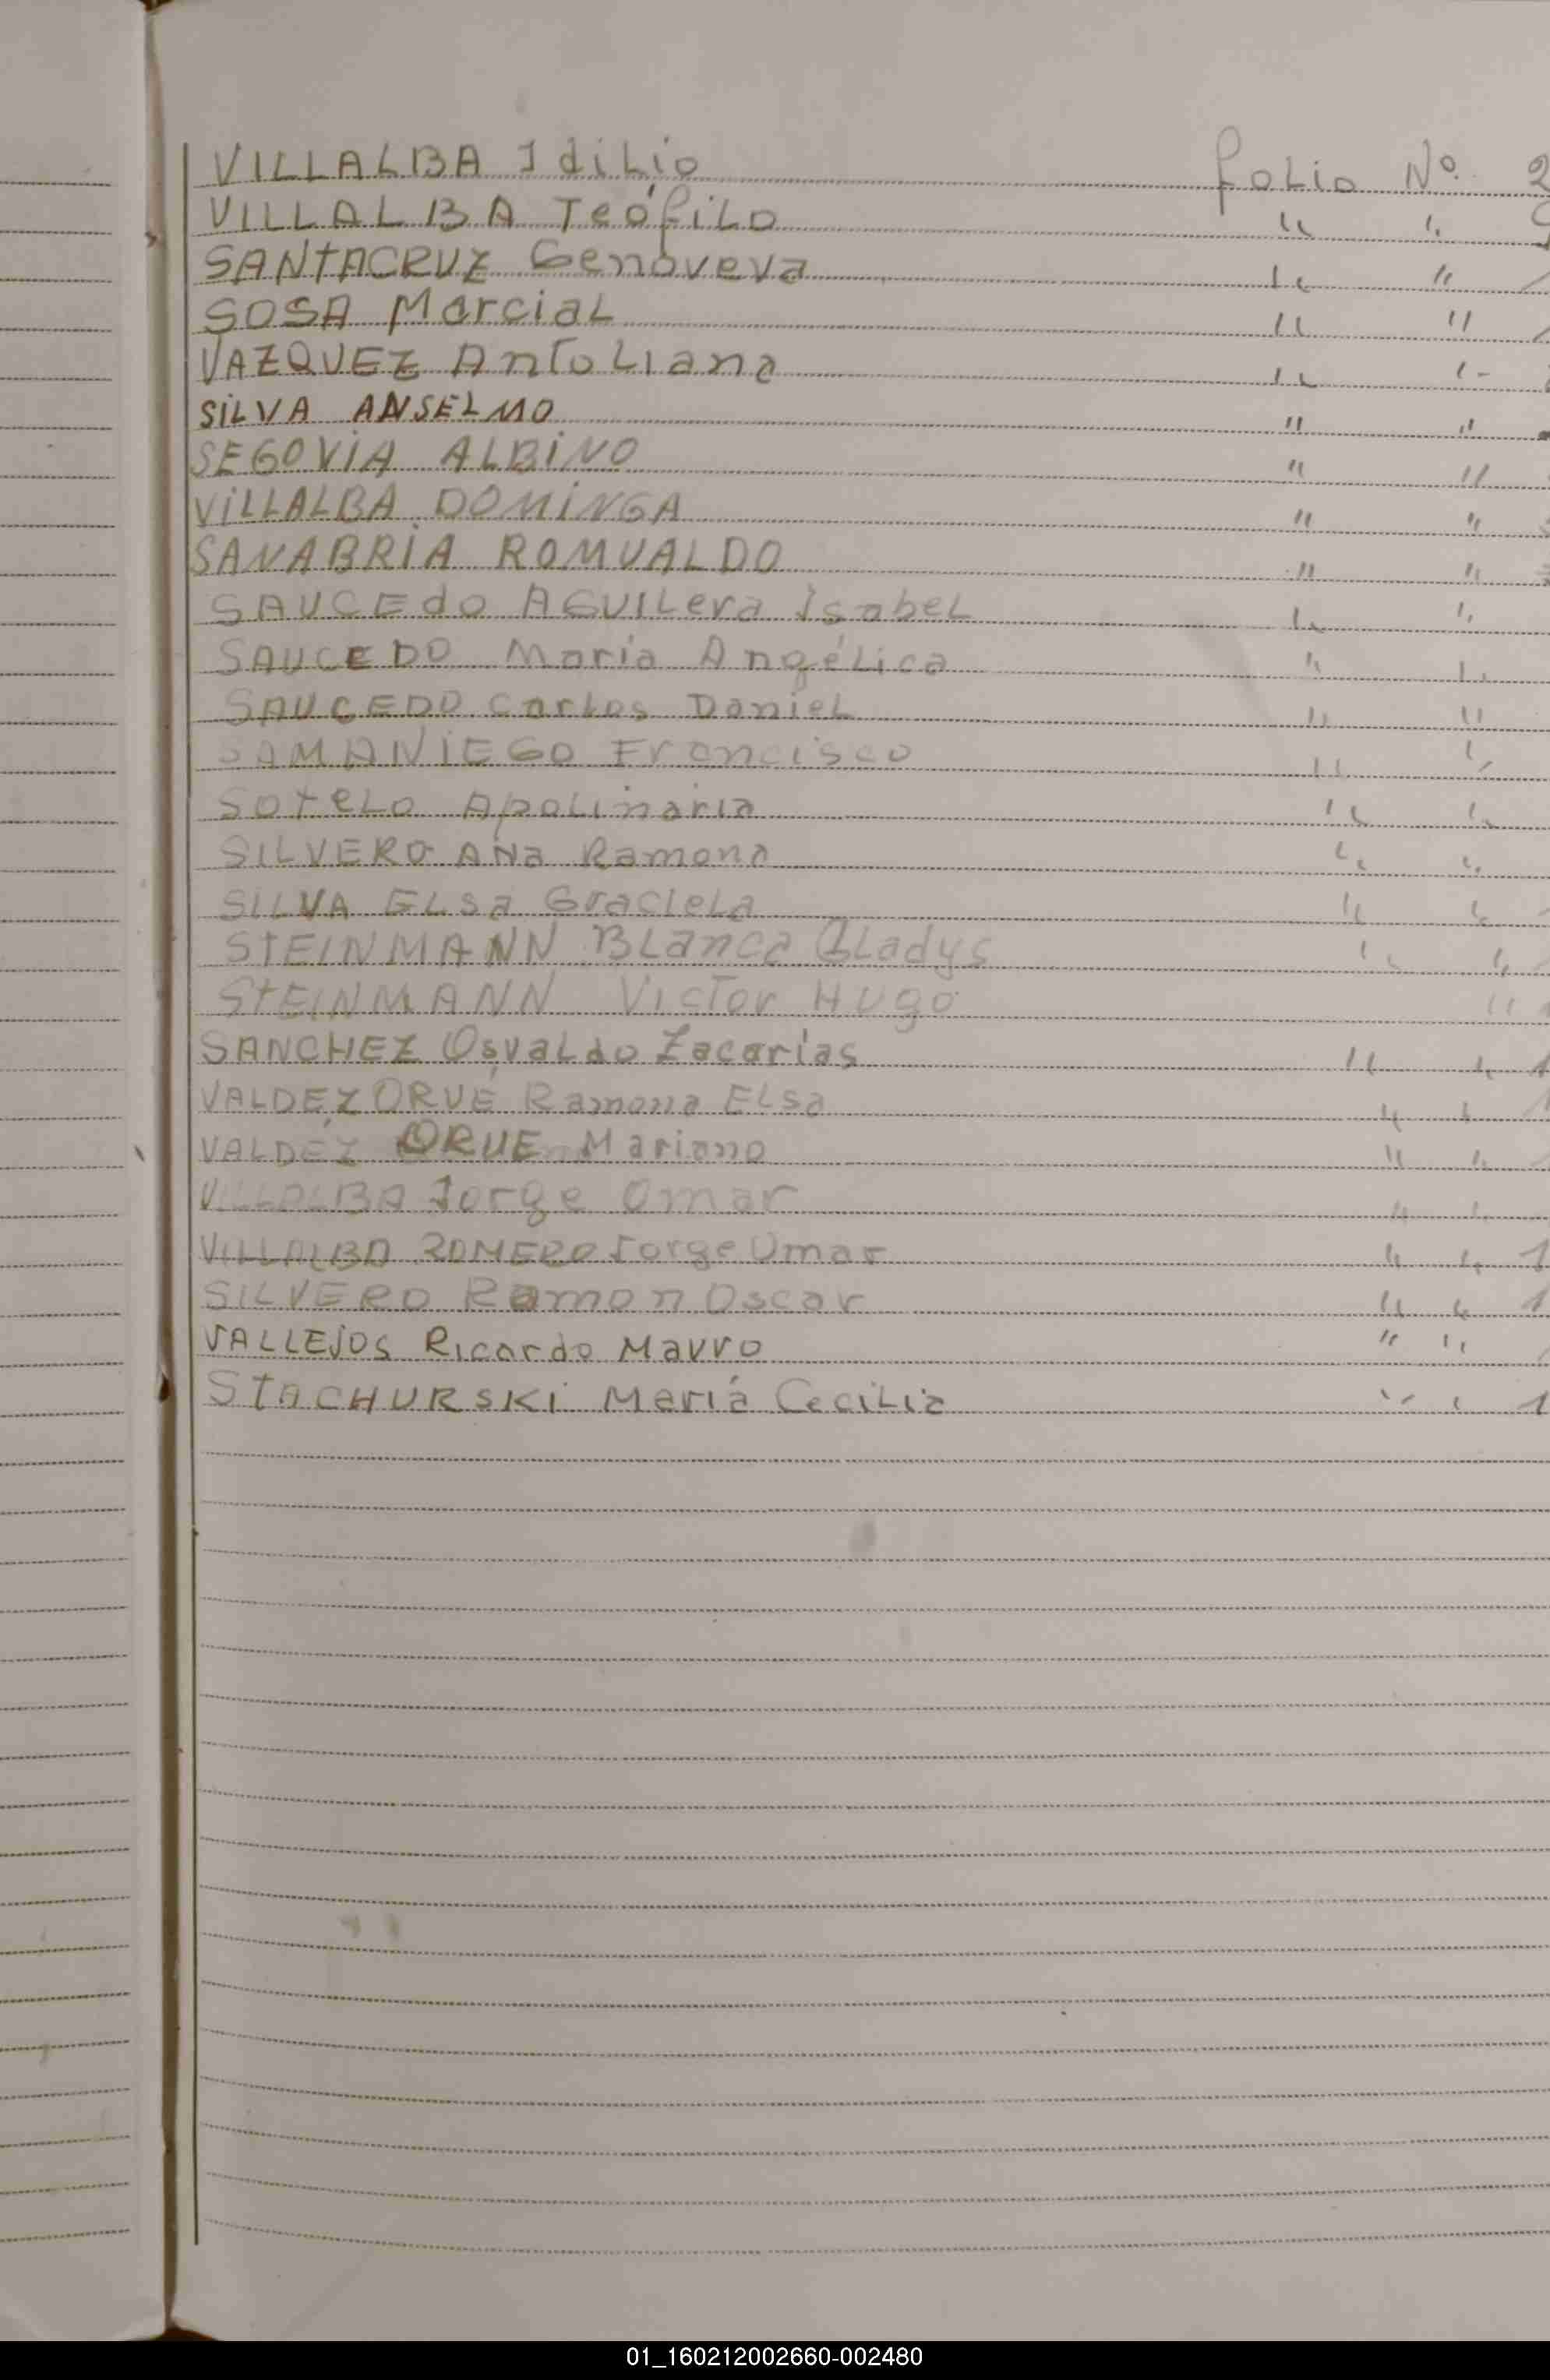 VILLALBA Idilio folio Nº 2
VILLALBA Teófilo " "
SANTACRUZ Genoveva " "
SOSA Marcial " "
VAZQUEZ Antoliana " "
SILVA ANSELMO " "
SEGOVIA ALBINO " "
VILLALBA DOMINGA " "
SANABRIA ROMUALDO " "
SAUCEdo AGUILera Isabel " "
SAUCEDO María Angélica " "
SAUCEDO Carlos Daniel " "
SAMANIEGO Francisco " "
Sotelo Apolinaria " "
SILVERO Ana Ramona " "
SILVA Elsa Graciela " "
STEINMANN Blanca Gladys " "
STEINMANN Victor Hugo "
SANCHEZ Osvaldo Zacarías " " 1
VALDEZ ORUÉ Ramona Elsa " " 1
VALDÉZ ORUE Mariano " "
VILLALBA Jorge Omar " "
VILLALBA ROMERO Jorge Omar " " 1
SILVERO Ramon Oscar " " 1
VALLEJOS Ricardo Mauro " "
STACHURSKI María Cecilia " " 1
01_160212002660-002480